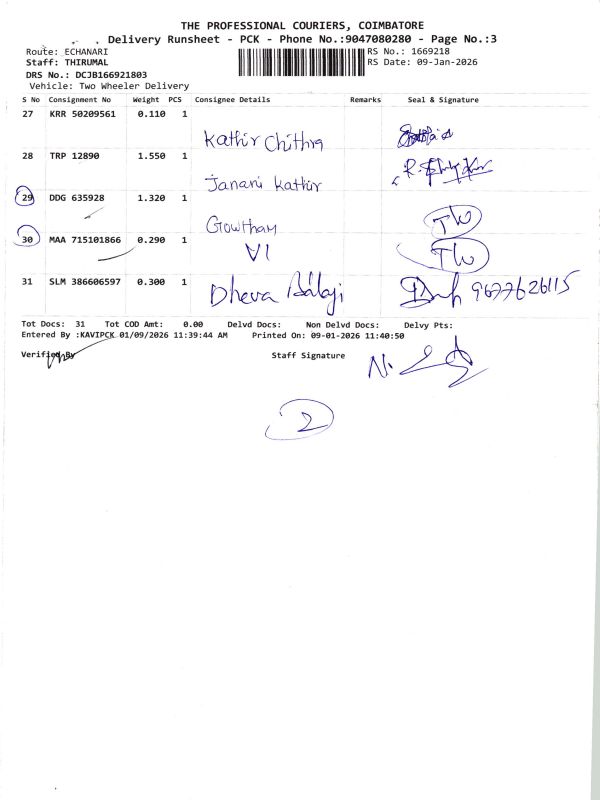 THE PROFESSIONAL COURIERS, COIMBATORE
Delivery Runsheet - PCK - Phone No.:9047080280 - Page No.:3
Route: ECHANARI RS No.: 1669218
Staff: THIRUMAL RS Date: 09-Jan-2026
DRS No.: DCJB166921803
Vehicle: Two Wheeler Delivery
S No Consignment No Weight PCS Consignee Details Remarks Seal & Signature
27 KRR 50209561 0.110 1
Kathir Chithra
28 TRP 12890 1.550 1
Janani Kathir
29 DDG 635928 1.320 1
Gowtham TW
30 MAA 715101866 0.290 1
VI TW
31 SLM 386606597 0.300 1
Dheva Balaji 9677626115
Tot Docs: 31 Tot COD Amt: 0.00 Delvd Docs: Non Delvd Docs: Delvy Pts:
Entered By :KAVIPCK 01/09/2026 11:39:44 AM Printed On: 09-01-2026 11:40:50
Verified By Staff Signature
2